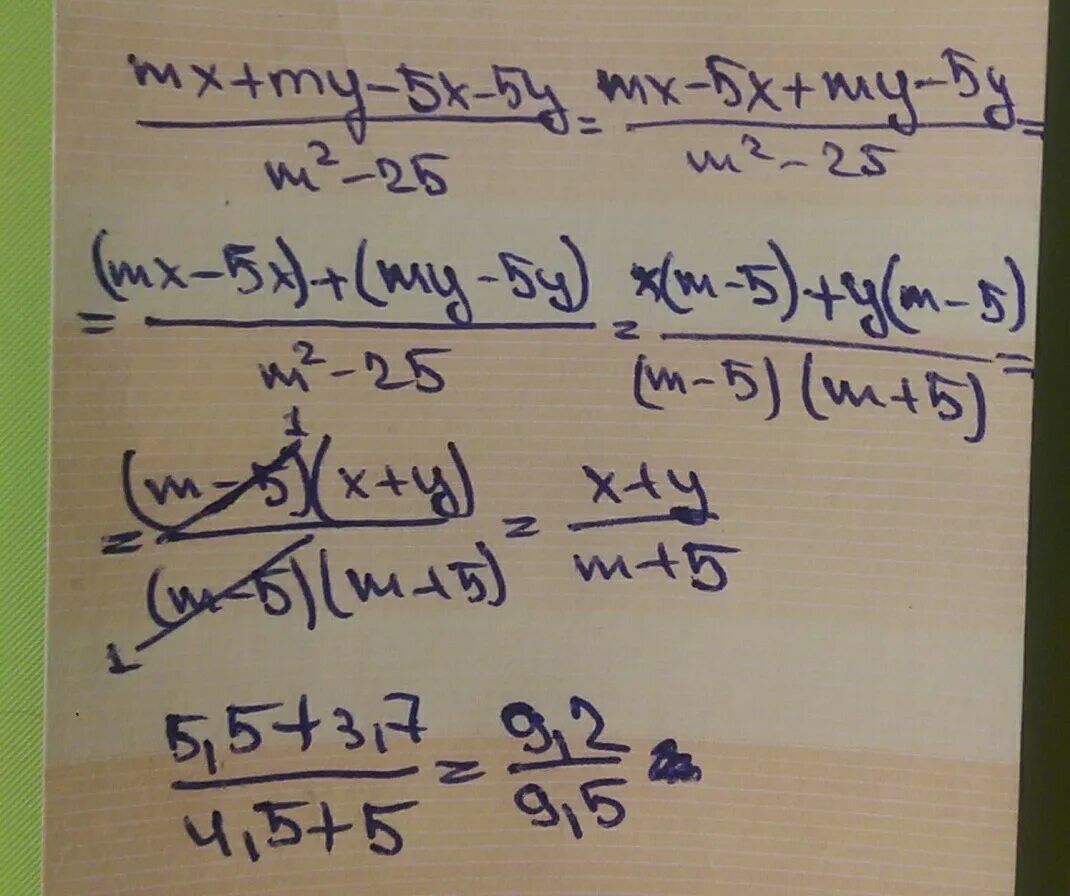 (mx+my-5x-5y)/(m²-25) = (mx-5x+my-5y)/(m²-25) =
= ((mx-5x)+(my-5y))/(m²-25) = (x(m-5)+y(m-5))/((m-5)(m+5)) =
= ((m-5)¹(x+y))/((m-5)₁(m+5)) = (x+y)/(m+5)
(5,5+3,7)/(4,5+5) = 9,2/9,5